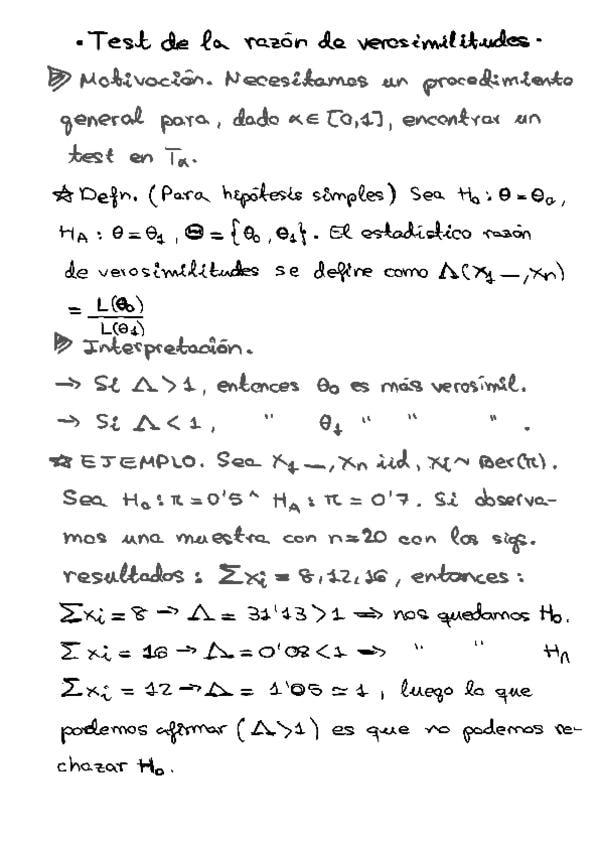 • Test de la razón de verosimilitudes •
▷ Motivación. Necesitamos un procedimiento
general para, dado α ∈ [0,1], encontrar un
test en Tα.
☆ Defn. (Para hipótesis simples) Sea H₀ : θ = θ₀,
H_A : θ = θ₁, Θ = {θ₀, θ₁}. El estadístico razón
de verosimilitudes se define como Λ(x₁ —, xn)
= L(θ₀) / L(θ₁)
▷ Interpretación.
→ Si Λ > 1, entonces θ₀ es más verosímil.
→ Si Λ < 1, " θ₁ " " " .
☆ EJEMPLO. Sea X₁ —, Xn iid, Xi ~ Ber(π).
Sea H₀ : π = 0'5 ^ H_A : π = 0'7. Si observa-
mos una muestra con n=20 con los sigs.
resultados : Σxi = 8, 12, 16, entonces :
Σxi = 8 → Λ = 31'13 > 1 ⇒ nos quedamos H₀.
Σxi = 16 → Λ = 0'08 < 1 ⇒ " " H_A
Σxi = 12 → Λ = 1'05 ≃ 1, luego lo que
podemos afirmar (Λ>1) es que no podemos re-
chazar H₀.